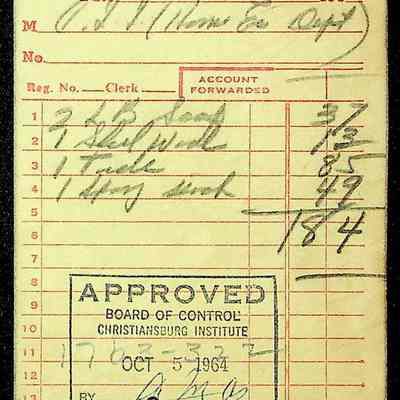 M (Home Ec Dept)
No.
Reg. No. Clerk ACCOUNT FORWARDED
1 2 LB Soap 37
2 1 Steel Wool 13
3 1 85
4 1 49
5 184
6
7
8
9
10
11
12
13
APPROVED
BOARD OF CONTROL
CHRISTIANSBURG INSTITUTE
1763-322
OCT 5 1964
BY